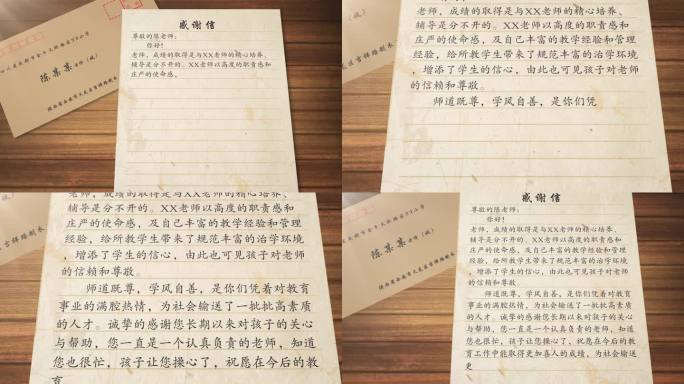 感谢信
尊敬的陈老师：
你好！
老师，成绩的取得是与XX老师的精心培养、
辅导是分不开的。XX老师以高度的职责感和
庄严的使命感，
陈某某
老师，成绩的取得是与XX老师的精心培养、
辅导是分不开的。XX老师以高度的职责感和
庄严的使命感，及自己丰富的教学经验和管理
经验，给所教学生带来了规范丰富的治学环境
，增添了学生的信心，由此也可见孩子对老师
的信赖和尊敬。
师道既尊，学风自善，是你们凭
老师，成绩的取得是与XX老师的精心培养、
辅导是分不开的。XX老师以高度的职责感和
庄严的使命感，及自己丰富的教学经验和管理
经验，给所教学生带来了规范丰富的治学环境
，增添了学生的信心，由此也可见孩子对老师
的信赖和尊敬。
师道既尊，学风自善，是你们凭着对教育
事业的满腔热情，为社会输送了一批批高素质
的人才。诚挚的感谢您长期以来对孩子的关心
与帮助，您一直是一个认真负责的老师，知道
您也很忙，孩子让您操心了，祝愿在今后的教
育
感谢信
尊敬的陈老师：
你好！
老师，成绩的取得是与XX老师的精心培养、
辅导是分不开的。XX老师以高度的职责感和
庄严的使命感，及自己丰富的教学经验和管理
经验，给所教学生带来了规范丰富的治学环境
，增添了学生的信心，由此也可见孩子对老师
的信赖和尊敬。
师道既尊，学风自善，是你们凭着对教育
事业的满腔热情，为社会输送了一批批高素质
的人才。诚挚的感谢您长期以来对孩子的关心
与帮助，您一直是一个认真负责的老师，知道
您也很忙，孩子让您操心了，祝愿在今后的教
育工作中能取得更加喜人的成绩，为社会输送
更
陈某某